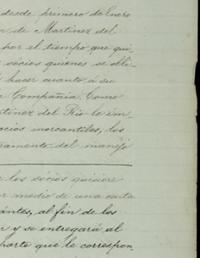 desde primero de Enero
n de Martinez del
por el tiempo que qui
socios quienes se obli
hacer cuanto á su
Compañia. Como
tinez del Rio lo im
ocios mercantiles, los
ramento del manejo
los socios quisiere
or medio de una carta
antes, al fin de los
n y se entregará al
parte que le correspon